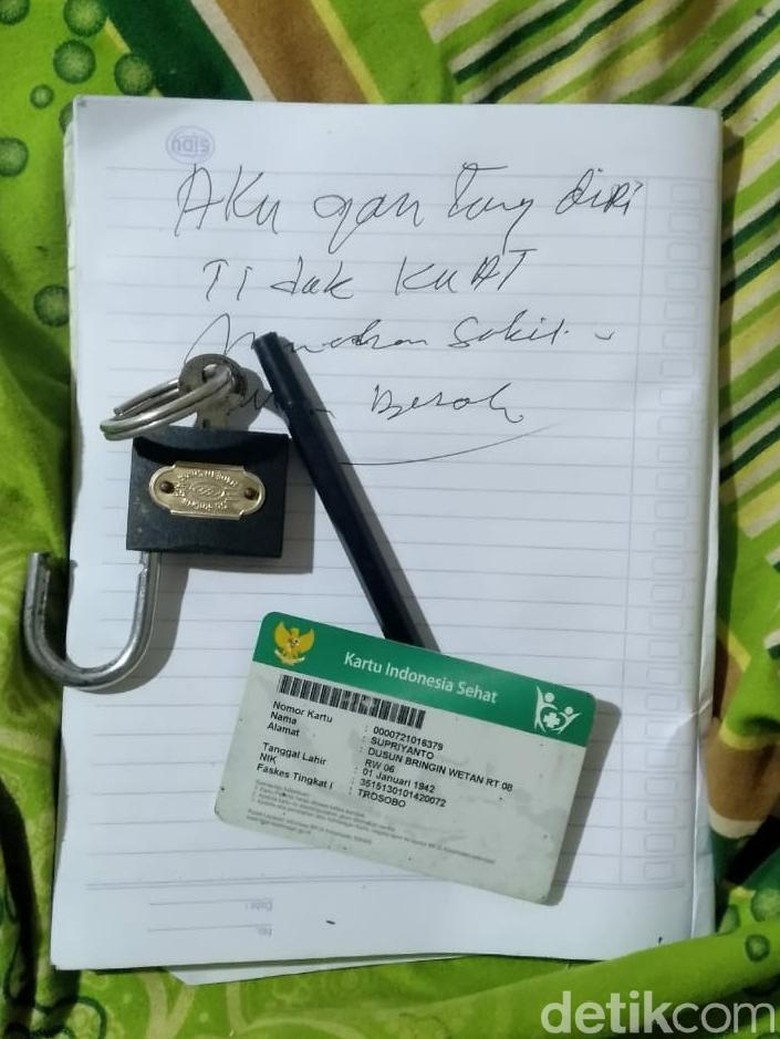 AKu gantung diRi
TiDak KuAT
Menahan Sakit
Besok
Kartu Indonesia Sehat
Nomor Kartu : 0000721016379
Nama : SUPRIYANTO
Alamat : DUSUN BRINGIN WETAN RT 08
RW 06
Tanggal Lahir : 01 Januari 1942
NIK : 3515130101420072
Faskes Tingkat I : TROSOBO
Date :
No.
detikcom